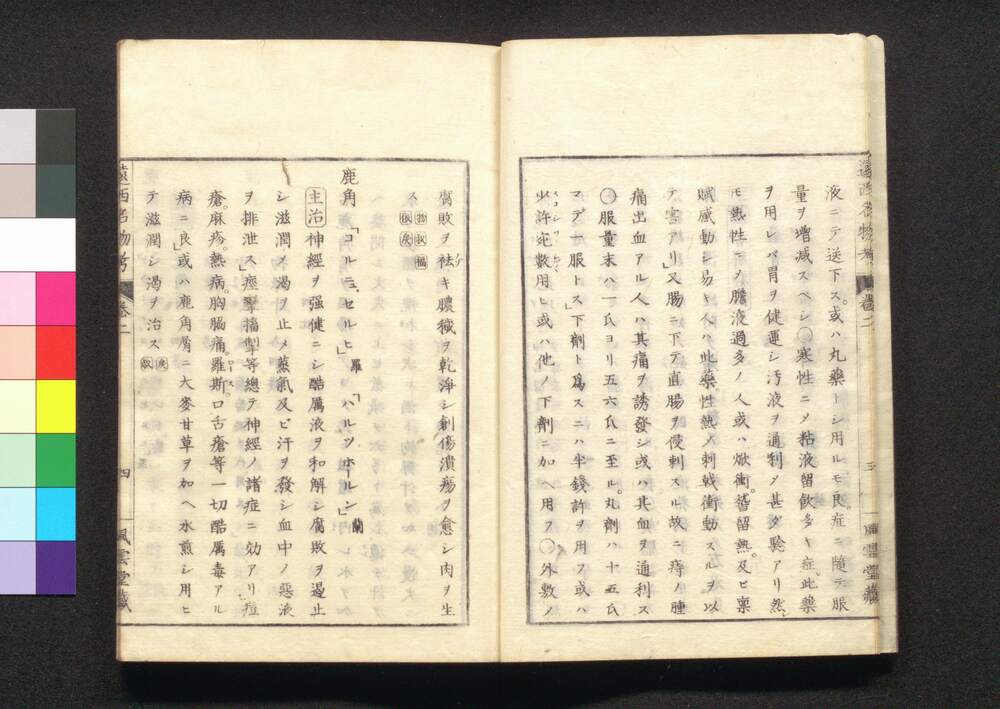 液ニテ送下ス。或ハ丸藥トシ用ルモ良。症ニ隨テ服
量ヲ増減スベシ〇寒性ニメ粘液留飲多キ症。此藥
ヲ用レバ胃ヲ健運シ汚液ヲ通利メ甚ダ驗アリ然
モ熱性ニメ膽液過多ノ人或ハ焮衝。畱留熱。及ビ稟
賦感動シ易キ人ハ此藥性熱ノ刺戟衝動スルヲ以
テ害アリ」又腸ニ下テ直腸ヲ侵刺スル故ニ痔ノ腫
痛出血アル人ハ其痛ヲ誘發シ或ハ其血ヲ通利ス
〇服量末ハ一氏ヨリ五六氏ニ至ル。丸劑ハ十五氏
マデ一服トス」下劑ト爲スニハ半錢許ヲ用フ或ハ
少許宛數用ヒ或ハ他ノ下劑ニ加ヘ用フ〇外敷ノ
遠西名物考 卷二 三 風雲堂藏
腐敗ヲ袪キ膿穢ヲ乾淨シ創傷潰瘍ヲ愈シ肉ヲ生
ス
鹿角 「コルニュ、セルヒ」羅 「ハルツホールン」蘭
主治 神經ヲ强健ニシ酷厲液ヲ和解シ腐敗ヲ遏止
シ滋潤メ渴ヲ止メ蒸氣及ビ汗ヲ發シ血中ノ惡液
ヲ排泄ス」痙攣搐掣等總テ神經ノ諸症ニ効アリ」痘
瘡。麻疹。熱病。胸膈痛。羅斯。口舌瘡等一切酷厲毒アル
病ニ良」或ハ鹿角屑ニ大麥甘草ヲ加ヘ水煎シ用ヒ
テ滋潤シ渴ヲ治ス
遠西名物考 卷二 四 風雲堂藏